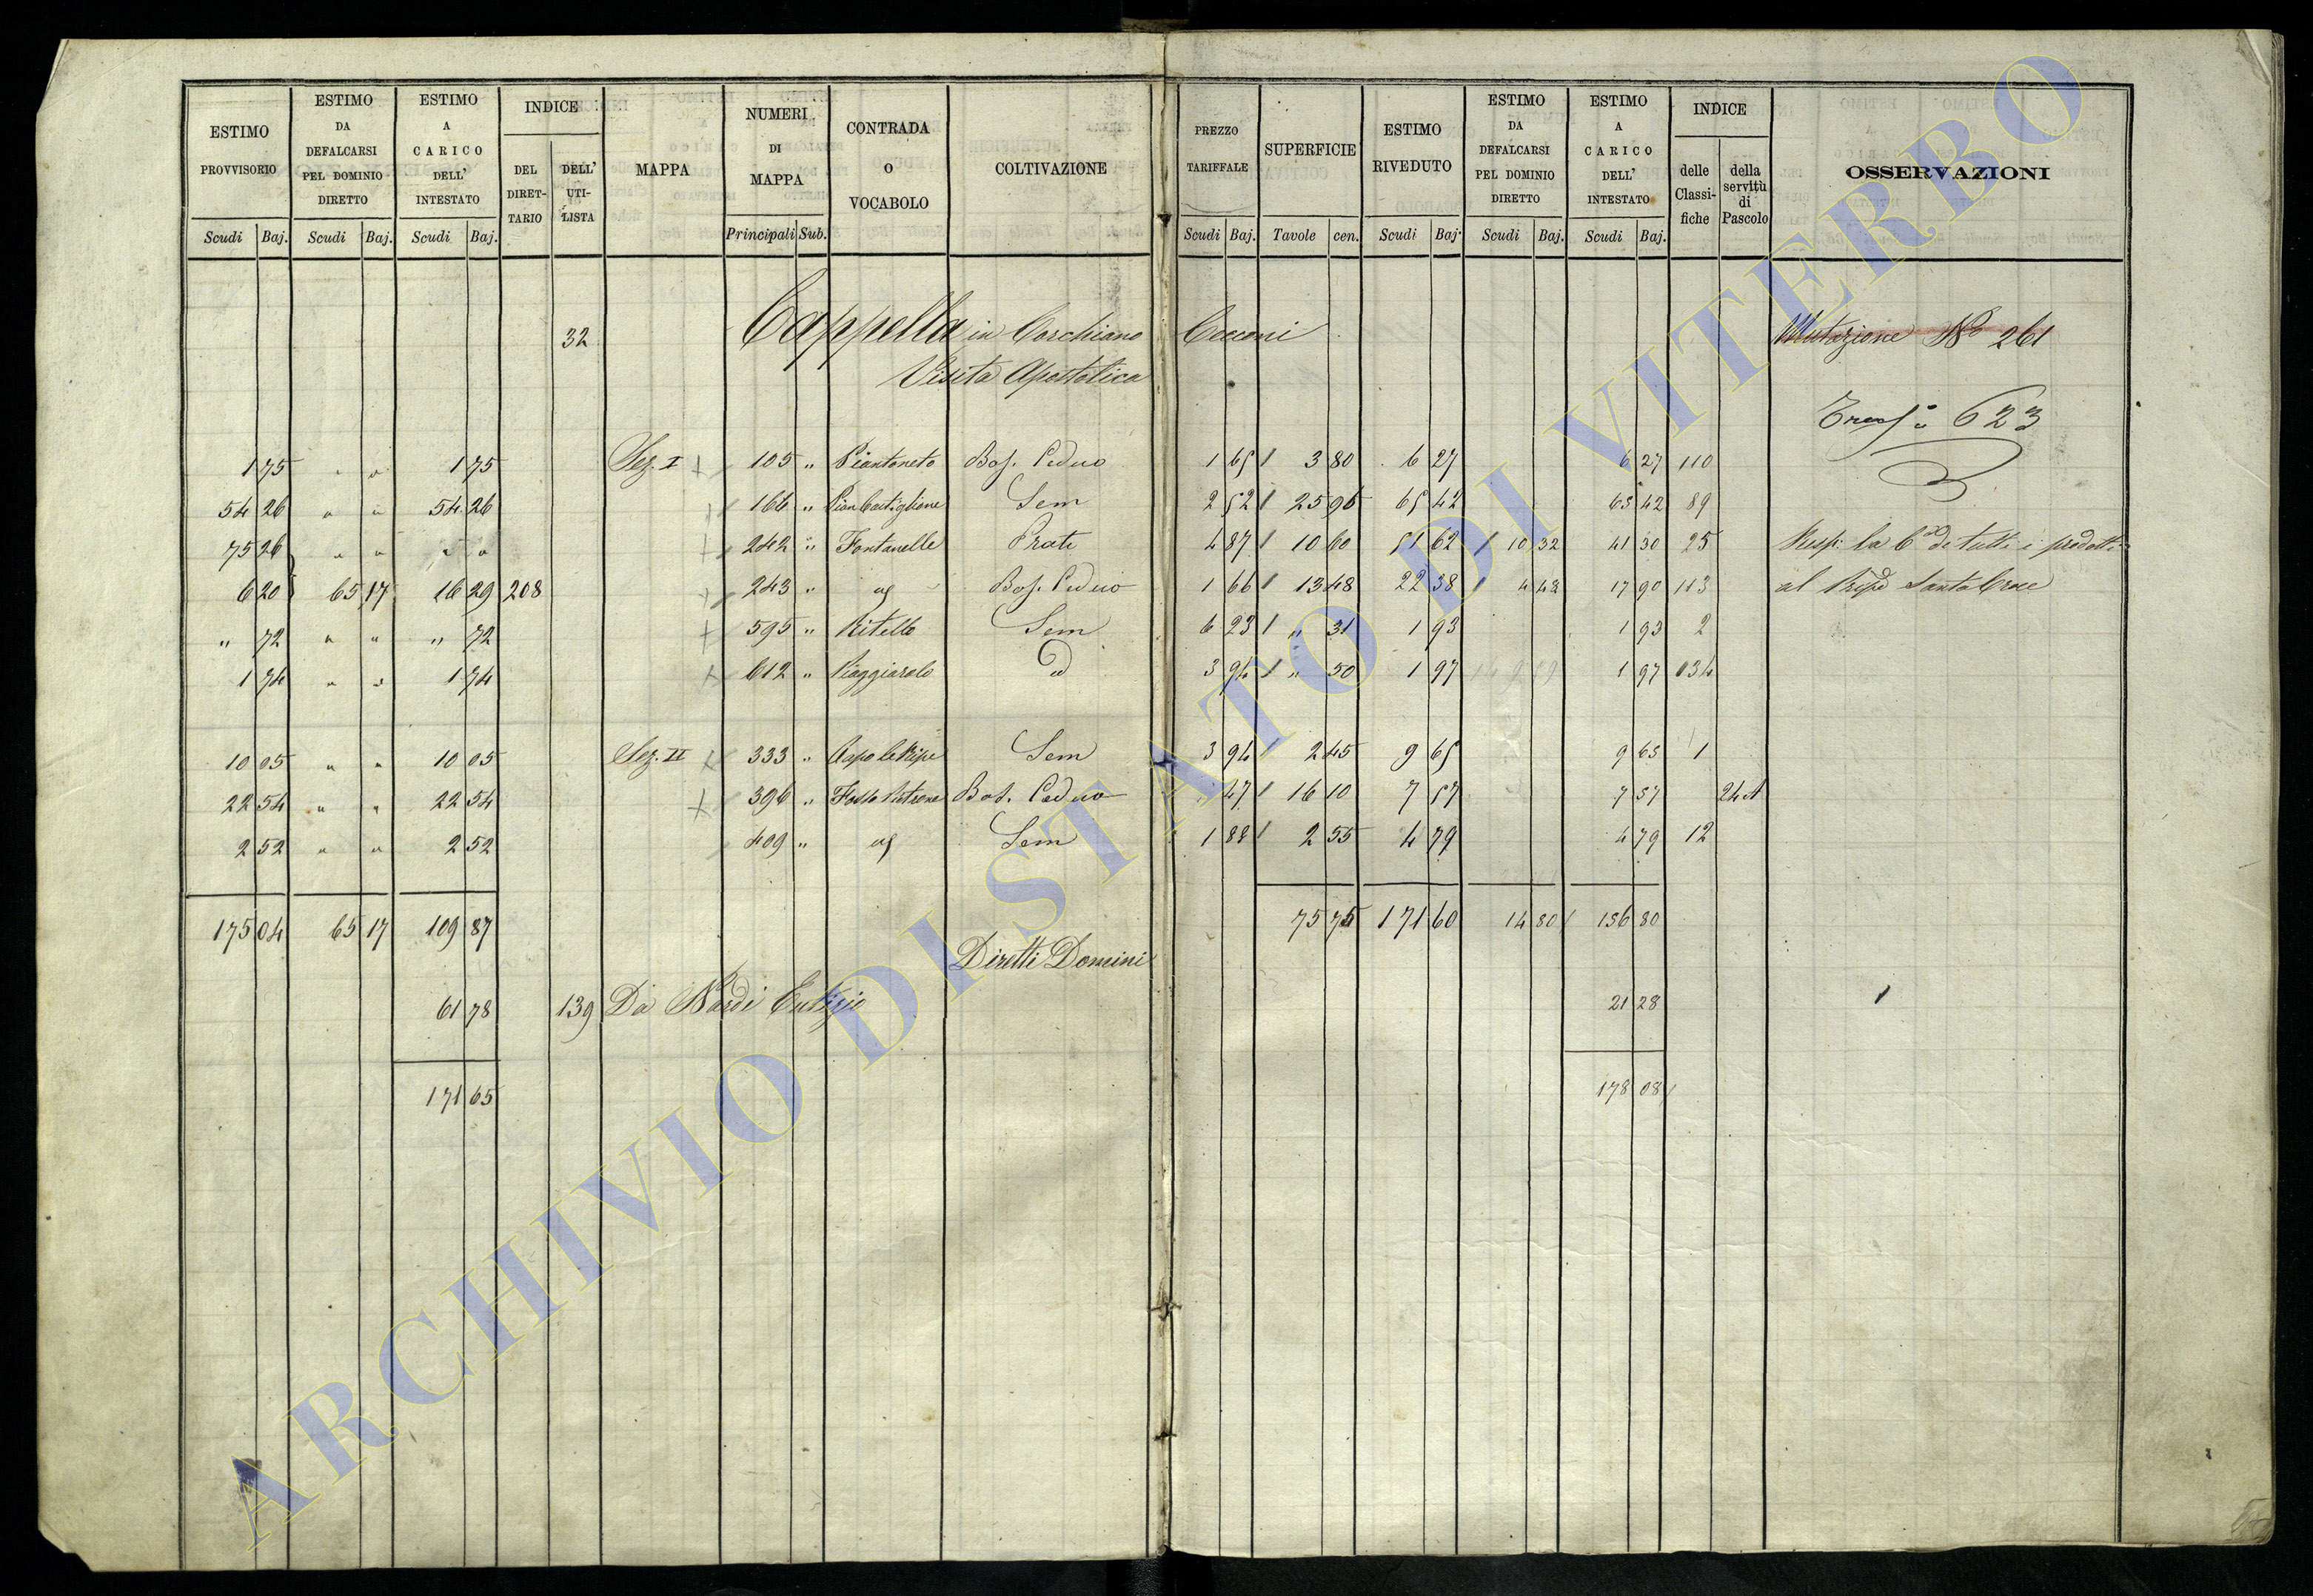 ESTIMO PROVVISORIO | ESTIMO DA DEFALCARSI PEL DOMINIO DIRETTO | ESTIMO A CARICO DELL' INTESTATO | INDICE DEL DIRETTARIO | DELL' UTILISTA | MAPPA | NUMERI DI MAPPA | CONTRADA O VOCABOLO | COLTIVAZIONE | PREZZO TARIFFALE | SUPERFICIE | ESTIMO RIVEDUTO | ESTIMO DA DEFALCARSI PEL DOMINIO DIRETTO | ESTIMO A CARICO DELL' INTESTATO | INDICE delle Classifiche | della servitù di Pascolo | OSSERVAZIONI
Scudi Baj. | Scudi Baj. | Scudi Baj. | Principali Sub. | Scudi Baj. | Tavole cen. | Scudi Baj. | Scudi Baj. | Scudi Baj.
32 Cappella in Corchiano Cecconi Mutazione No 261
Visita Apostolica
623
1 75 " " 1 75 Sez. I 105 " Piantoneto Bos. Ceduo 1 65 3 80 6 27 6 27 110
54 26 " " 54 26 166 " Pian Castiglione Sem 2 52 25 96 65 42 65 42 89
75 26 " " " " 242 " Fontanelle Prato 4 87 10 60 51 62 10 32 41 30 25 Risp: la 6 di tutti i prodotti
6 20 65 17 16 29 208 243 " Bos. Ceduo 1 66 13 48 22 38 4 48 17 90 113 al Santa Croce
" 72 " " " 72 595 " Ritello Sem 6 23 " 31 1 93 1 93 2
1 74 " " 1 74 612 " Piaggiarolo 3 94 " 50 1 97 1 97 134
10 05 " " 10 05 Sez. II 333 " Capo le Ripe Sem 3 94 2 45 9 65 9 65 1
22 54 " " 22 54 396 " Fosso Bos. Ceduo " 47 16 10 7 57 7 57 24 A
2 52 " " 2 52 409 " Sem 1 88 2 55 4 79 4 79 12
175 04 65 17 109 87 75 75 171 60 14 80 156 80
Diretti Domini
61 78 139 Da Nardi Eutizio 21 28
171 65 178 08
ARCHIVIO DI STATO DI VITERBO